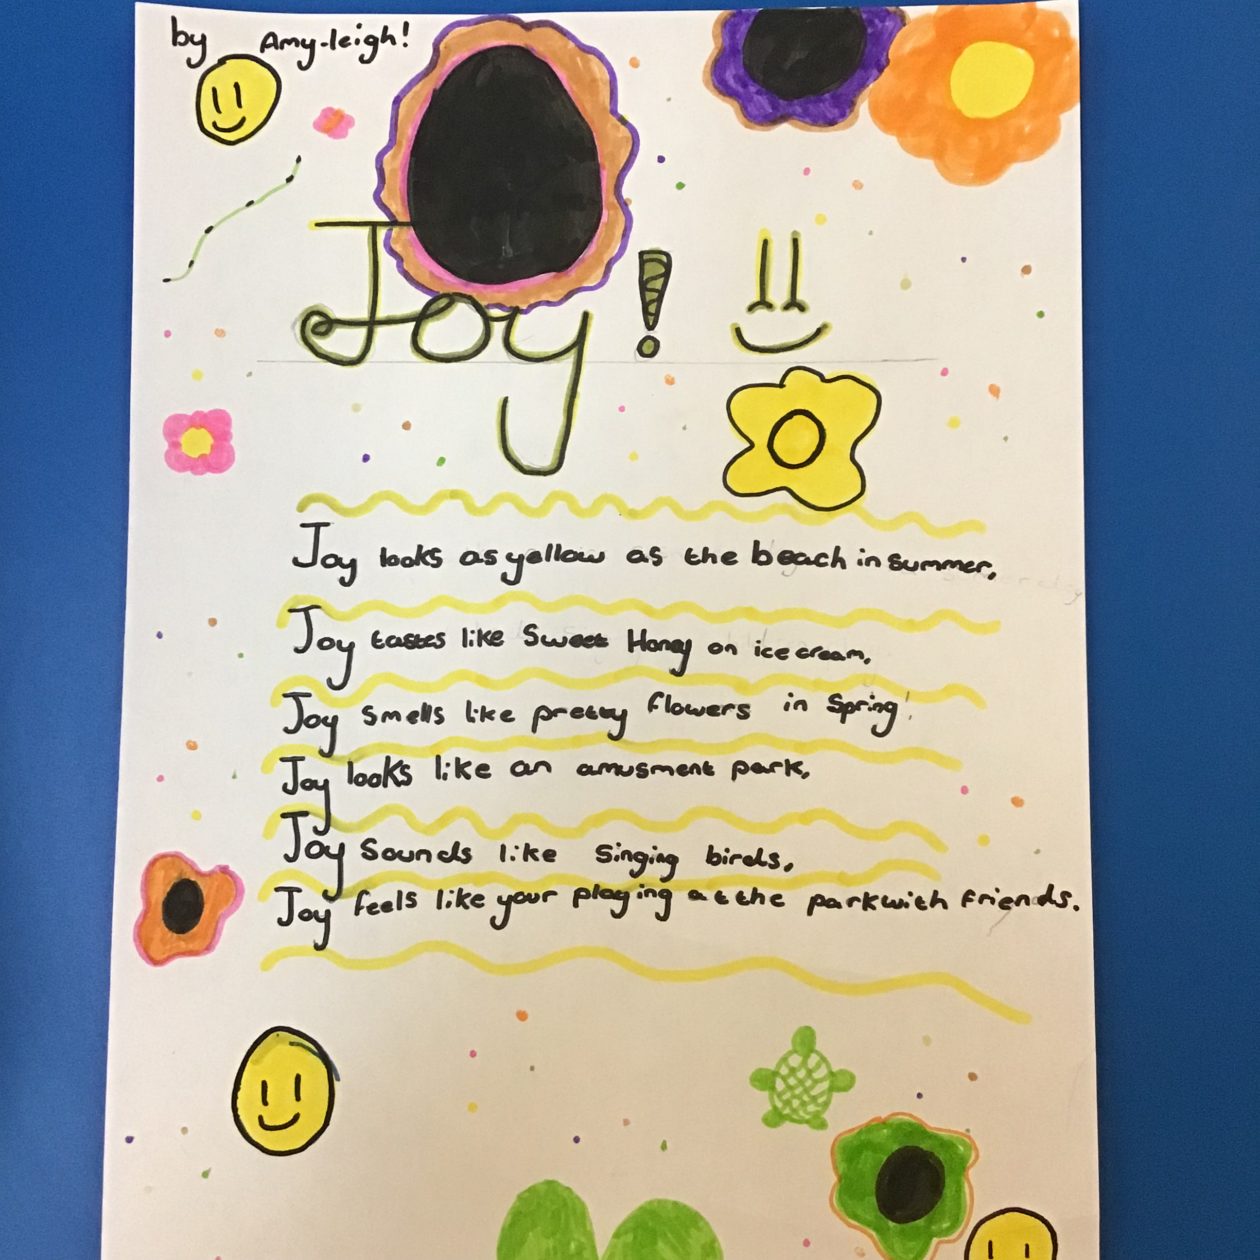 by Amy-leigh!
Joy!
Joy looks as yellow as the beach in summer,
Joy tastes like Sweet Honey on ice cream,
Joy Smells like pretty flowers in Spring!
Joy looks like an amusment park,
Joy Sounds like Singing birds,
Joy feels like your playing at the park with friends.